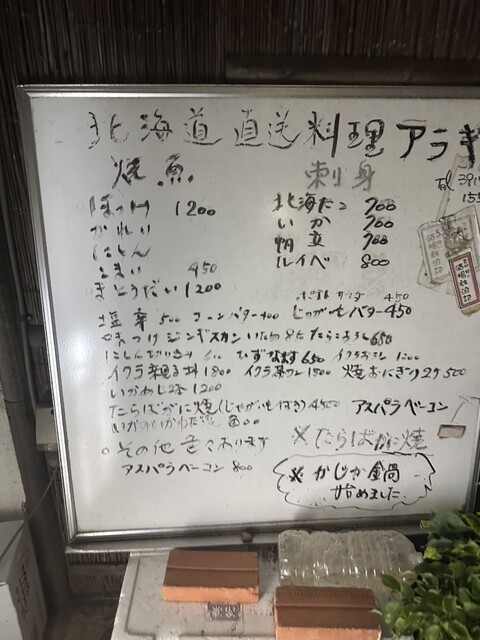 北海道直送料理アラギ
焼魚 刺身
ほっけ 1200 北海だこ 700
かれい いか 700
にしん 帆立 700
こまい 450 ルイベ 800
まとうだい 1200
ポテトサラダ 450
塩辛 500 コーンバター 400 じゃがいもバター 450
味つけジンギスカン たらこおろし 650
ひずなます 650
イクラ親子丼 1800 イクラ 1500 焼おにぎり2ケ 500
いかわし 1200
たらばがに焼(じゃがいも付き) 4500 アスパラベーコン
800
○その他 ございます ※たらばがに焼
アスパラベーコン 800
※かじか鍋
始めました